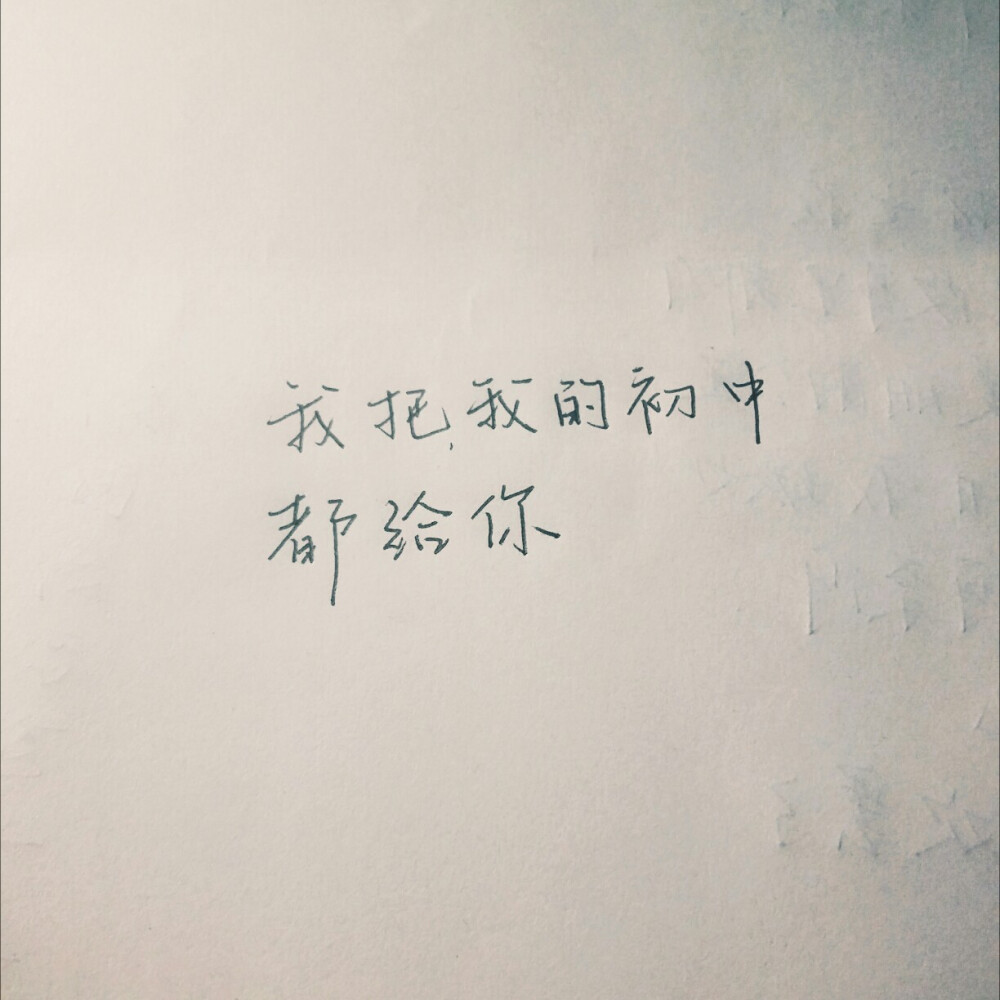 我把我的初中
都给你